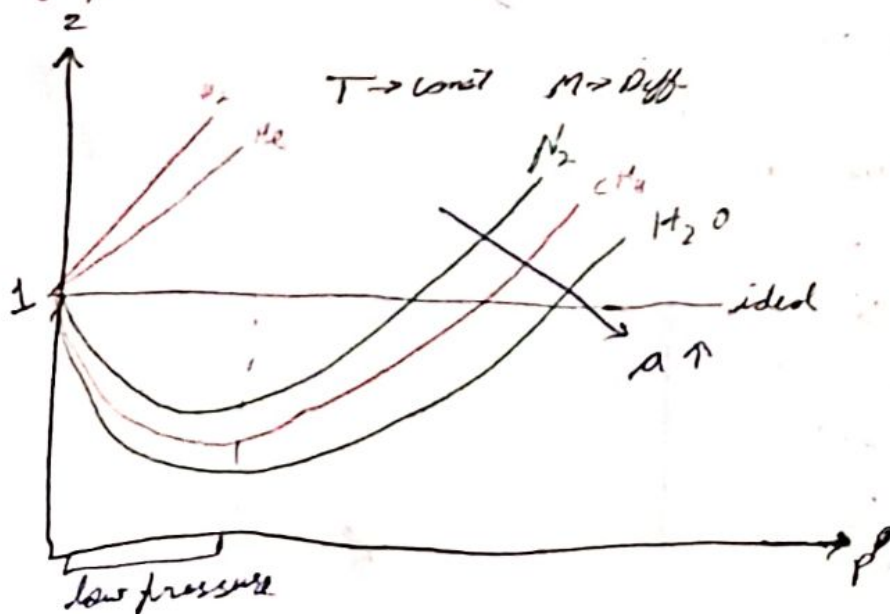 z
T → const M → Diff
H₂
He
N₂
CH₄
H₂O
1
ideal
a ↑
P
low pressure